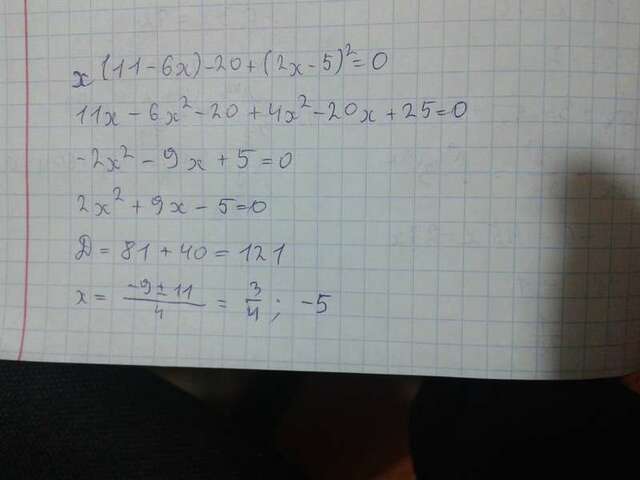 x(11-6x)-20+(2x-5)²=0
11x-6x²-20+4x²-20x+25=0
-2x²-9x+5=0
2x²+9x-5=0
D=81+40=121
x=(-9±11)/4=3/4; -5